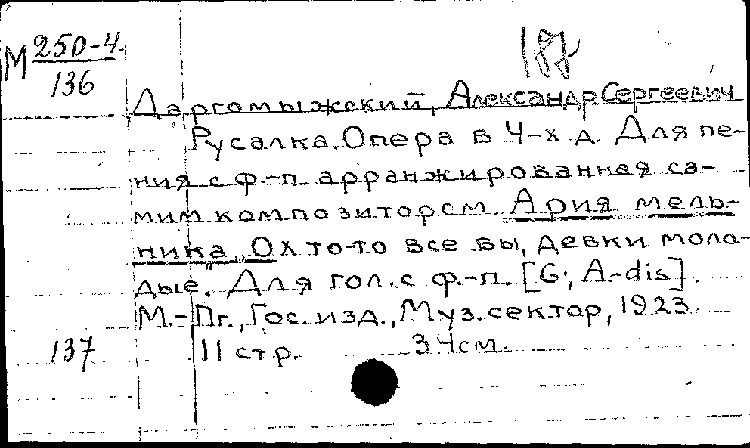 М 250-4
136
187
Даргомыжский, Александр Сергеевич
Русалка. Опера в 4-х д. Для пе-
ния с ф-п. арранжированная са-
мим композитором. Ария мель-
ника „Ох то-то все вы, девки моло-
дые". Для гол. с ф.-п. [G; A-dis].
М.-Пг., Гос. изд., Муз. сектор, 1923.
137 11 стр. 34см.